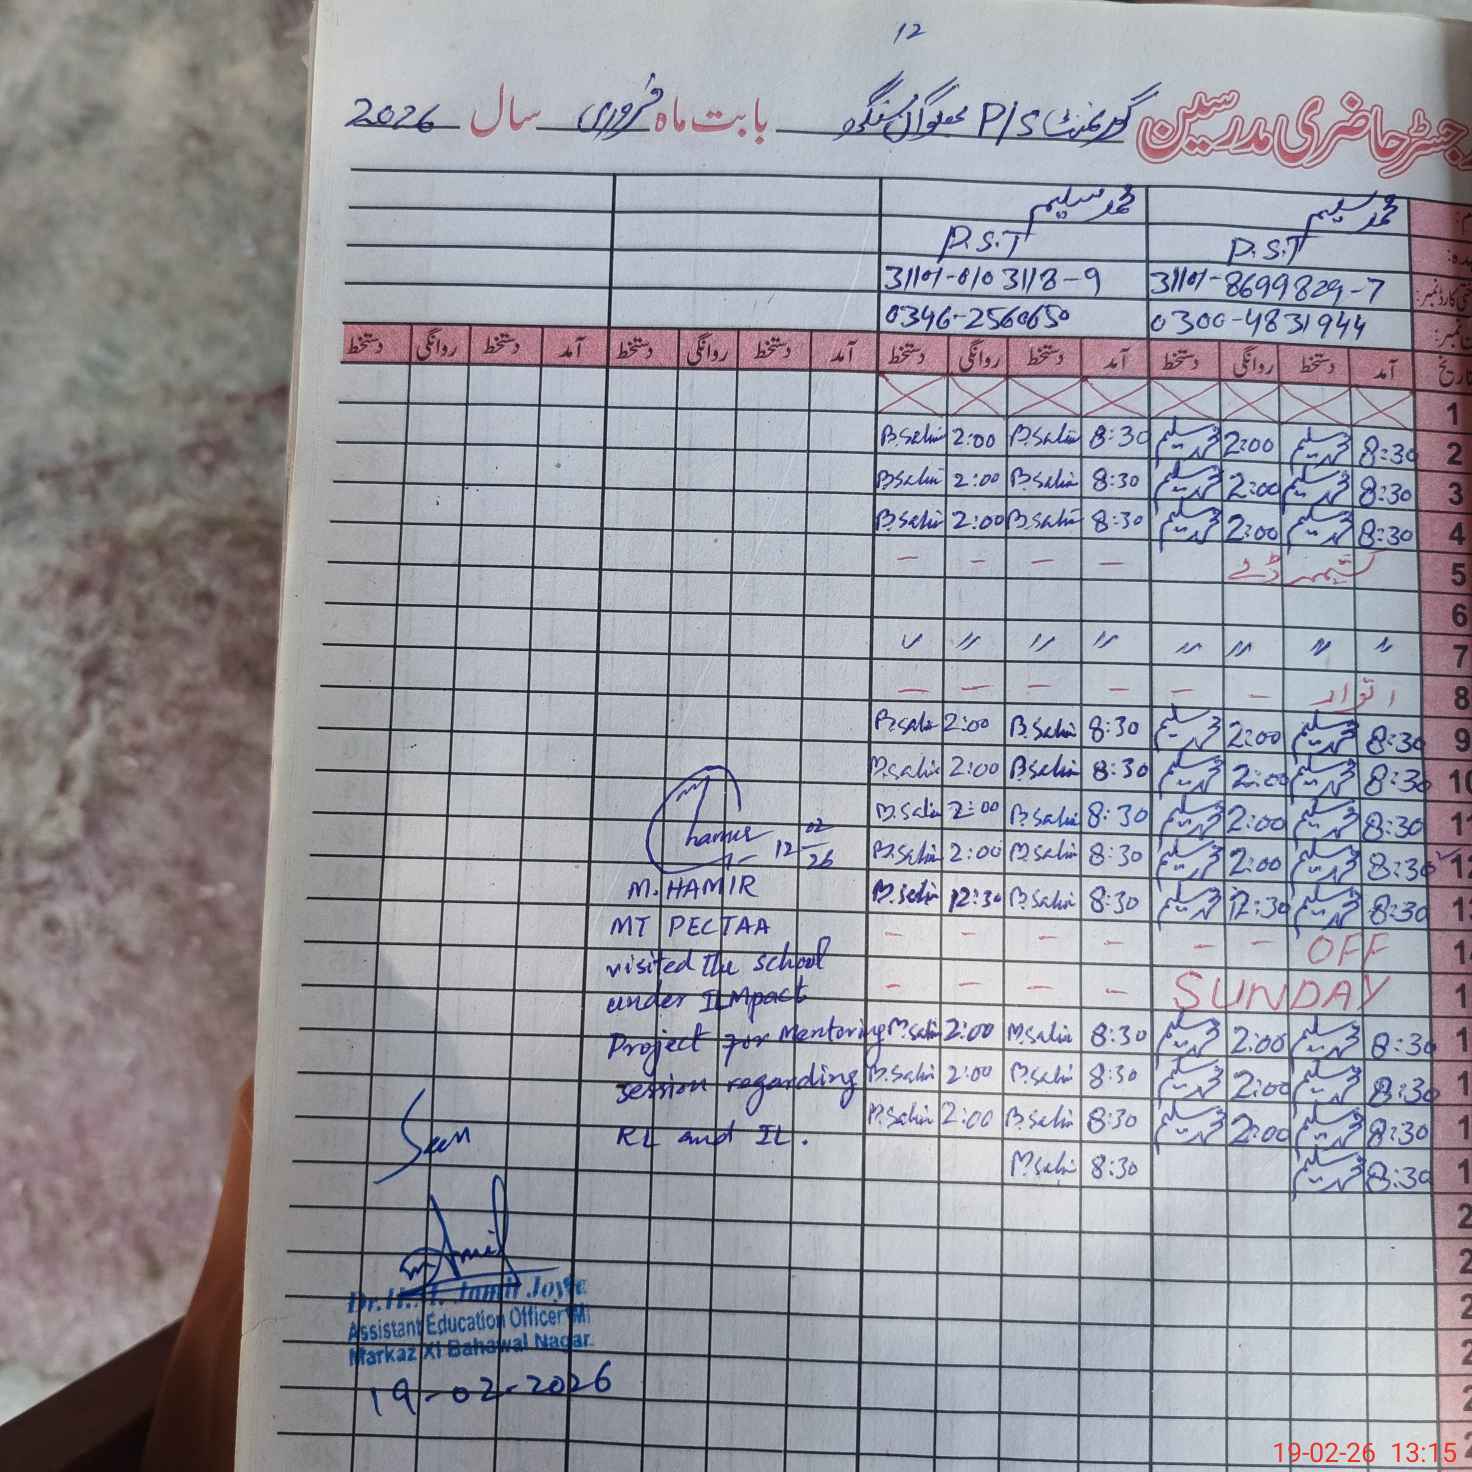 12
رجسٹر حاضری مدرسین گورنمنٹ P/S بھگوان سنگھ بابت ماہ فروری سال 2026
محمد سلیم محمد سلیم
P.S.T P.S.T
31101-8699829-7 31101-0103118-9
0300-4831944 0346-2560650
تاریخ آمد دستخط روانگی دستخط آمد دستخط روانگی دستخط آمد دستخط روانگی دستخط آمد دستخط روانگی دستخط
1
2 8:30 محمد سلیم 2:00 محمد سلیم 8:30 B.Salim 2:00 B.Salim
3 8:30 محمد سلیم 2:00 محمد سلیم 8:30 B.Salim 2:00 B.Salim
4 8:30 محمد سلیم 2:00 محمد سلیم 8:30 B.Salim 2:00 B.Salim
5 کشمیر ڈے - - - -
6
7 " " " " " " " "
8 اتوار - - - - - -
9 8:30 محمد سلیم 2:00 محمد سلیم 8:30 B.Salim 2:00 B.Salim
10 8:30 محمد سلیم 2:00 محمد سلیم 8:30 B.Salim 2:00 M.Salim
11 8:30 محمد سلیم 2:00 محمد سلیم 8:30 B.Salim 2:00 B.Salim
12 8:30 محمد سلیم 2:00 محمد سلیم 8:30 M.Salim 2:00 B.Salim
8:30 محمد سلیم 12:30 محمد سلیم 8:30 B.Salim 12:30 B.Salim
OFF - - - - - -
SUNDAY - - - -
8:30 محمد سلیم 2:00 محمد سلیم 8:30 M.Salim 2:00 M.Salim
8:30 محمد سلیم 2:00 محمد سلیم 8:30 B.Salim 2:00 B.Salim
8:30 محمد سلیم 2:00 محمد سلیم 8:30 B.Salim 2:00 B.Salim
8:30 محمد سلیم 8:30 M.Salim
12 02/26
M. HAMIR
MT PECTAA
visited the school
under ILMpact
Project for Mentoring
session regarding
RL and IL.
Seen
Jamil Joyia
Assistant Education Officer (M)
Markaz XI Bahawal Nagar.
19-02-2026
19-02-26 13:15